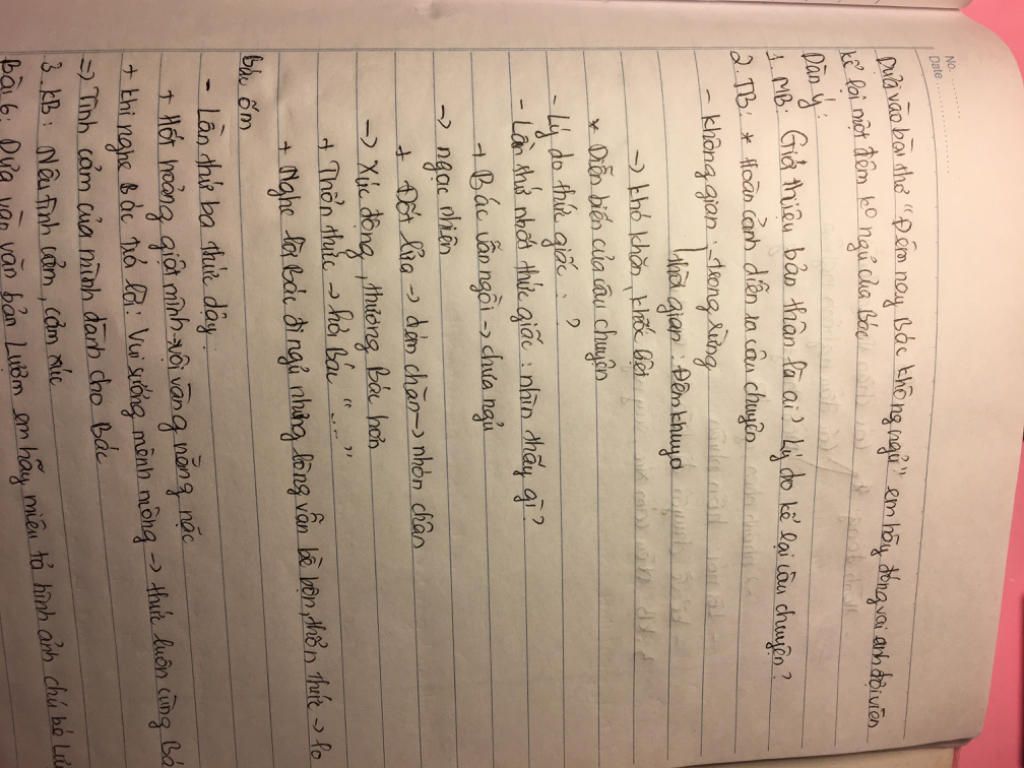 No.
Date
Dựa vào bài thơ "Đêm nay Bác không ngủ" em hãy đóng vai anh đội viên
kể lại một đêm ko ngủ của Bác
Dàn ý:
1. MB: Giới thiệu bản thân là ai? Lý do kể lại câu chuyện?
2. TB: * Hoàn cảnh diễn ra câu chuyện
- không gian: trong rừng
Thời gian: Đêm khuya
-> khó khăn, khốc liệt
* Diễn biến của câu chuyện
- Lý do thức giấc: ?
- Lần thứ nhất thức giấc: nhìn thấy gì?
+ Bác vẫn ngồi -> chưa ngủ
-> ngạc nhiên
+ Đốt lửa -> dém chăn -> nhón chân
-> Xúc động, thương Bác hơn
+ Thổn thức -> hỏi Bác "....."
+ Nghe lời Bác đi ngủ nhưng lòng vẫn bề bộn, thổn thức -> lo
Bác ốm
- Lần thứ ba thức dậy:
+ Hốt hoảng giật mình -> vội vàng nằng nặc
+ khi nghe Bác trả lời: Vui sướng mênh mông -> thức luôn cùng Bác
=> Tình cảm của mình dành cho Bác
3. KB: Nêu tình cảm, cảm xúc
Bài 6: Dựa vào văn bản Lượm em hãy miêu tả hình ảnh chú bé